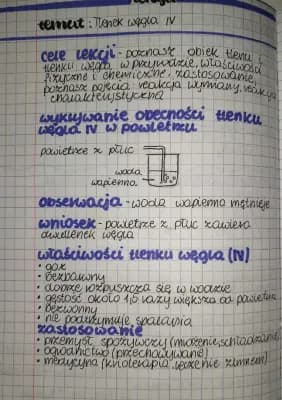 temat: Tlenek węgla IV
cele lekcji - poznasz obieg tlenu i
tlenku węgla w przyrodzie, właściwości
fizyczne i chemiczne, zastosowanie,
poznasz pojęcia reakcja wymiany, reakcja
charakterystyczna
wykrywanie obecności tlenku
węgla IV w powietrzu
powietrze z płuc
woda
wapienna
obserwacja - woda wapienna mętnieje
wniosek - powietrze z płuc zawiera
dwutlenek węgla
właściwości tlenku węgla (IV)
• gaz
• bezbarwny
• dobrze rozpuszcza się w wodzie
• gęstość około 1,5 razy większa od powietrza
• bezwonny
• nie podtrzymuje spalania
zastosowanie
• przemysł spożywczy (mrożenie, schładzanie)
• ogrodnictwo (przechowywanie)
• medycyna (krioterapia, leczenie zimnem)